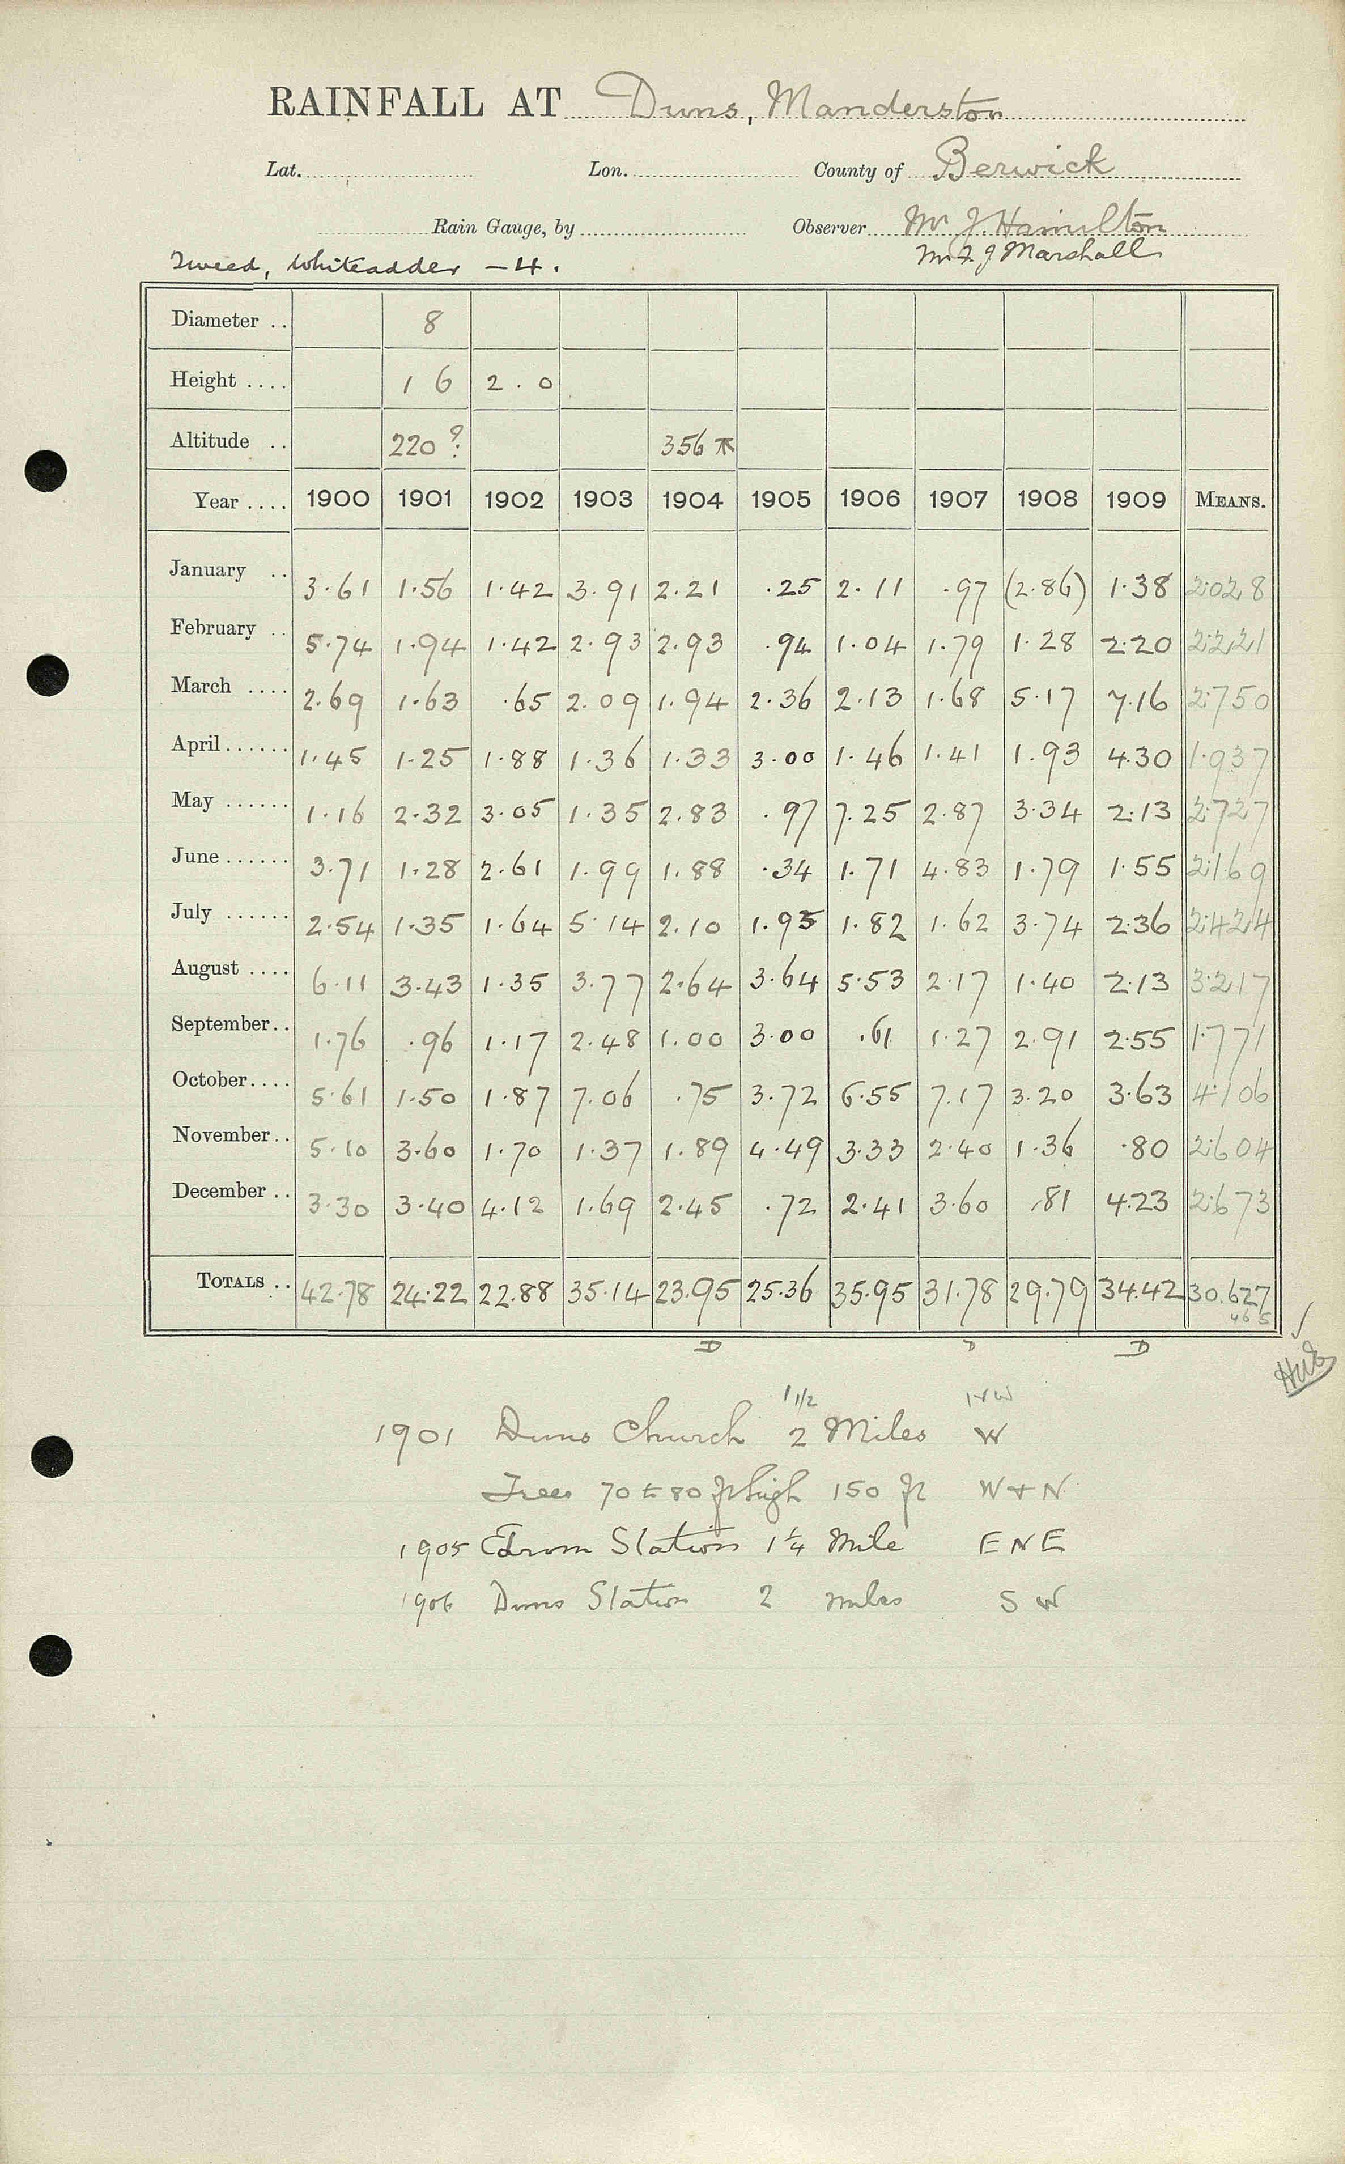 RAINFALL AT Duns, Manderston
Lat. Lon. County of Berwick
Rain Gauge, by Observer Mr J. Hamilton
Tweed, Whiteadder - 4. Mr F J Marshall
Diameter .. 8
Height .... 1 6 2 . 0
Altitude .. 220 ? 356
Year .... 1900 1901 1902 1903 1904 1905 1906 1907 1908 1909 MEANS.
January .. 3.61 1.56 1.42 3.91 2.21 .25 2.11 .97 (2.86) 1.38 2.028
February .. 5.74 1.94 1.42 2.93 2.93 .94 1.04 1.79 1.28 2.20 2.221
March .... 2.69 1.63 .65 2.09 1.94 2.36 2.13 1.68 5.17 7.16 2.750
April ...... 1.45 1.25 1.88 1.36 1.33 3.00 1.46 1.41 1.93 4.30 1.937
May ...... 1.16 2.32 3.05 1.35 2.83 .97 7.25 2.87 3.34 2.13 2.727
June ...... 3.71 1.28 2.61 1.99 1.88 .34 1.71 4.83 1.79 1.55 2.169
July ...... 2.54 1.35 1.64 5.14 2.10 1.93 1.82 1.62 3.74 2.36 2.424
August .... 6.11 3.43 1.35 3.77 2.64 3.64 5.53 2.17 1.40 2.13 3.217
September.. 1.76 .96 1.17 2.48 1.00 3.00 .61 1.27 2.91 2.55 1.771
October.... 5.61 1.50 1.87 7.06 .75 3.72 6.55 7.17 3.20 3.63 4.106
November.. 5.10 3.60 1.70 1.37 1.89 4.49 3.33 2.40 1.36 .80 2.604
December .. 3.30 3.40 4.12 1.69 2.45 .72 2.41 3.60 .81 4.23 2.673
TOTALS .. 42.78 24.22 22.88 35.14 23.95 25.36 35.95 31.78 29.79 34.42 30.627
46 5
D D D
1 1/2 NW
1901 Duns Church 2 Miles W
Trees 70 to 80 ft high 150 ft W + N
1905 Edrom Station 1 1/4 Mile E N E
1906 Duns Station 2 miles S W